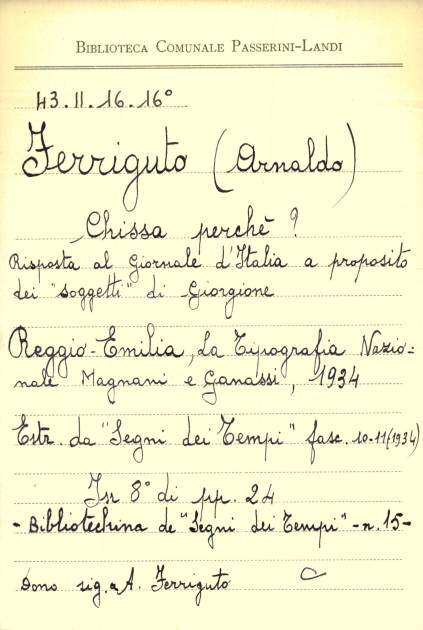 BIBLIOTECA COMUNALE PASSERINI-LANDI
43.II.16.16°
Ferriguto (Arnaldo)
Chissa perchè ?
Risposta al Giornale d'Italia a proposito
dei "soggetti" di Giorgione
Reggio-Emilia, La Tipografia Nazio=
nale Magnani e Ganassi, 1934
Estr. da "Segni dei Tempi" fasc. 10-11(1934)
In 8° di pp. 24
- Bibliotechina de "Segni dei Tempi" - n. 15 -
Dono sig. A. Ferriguto